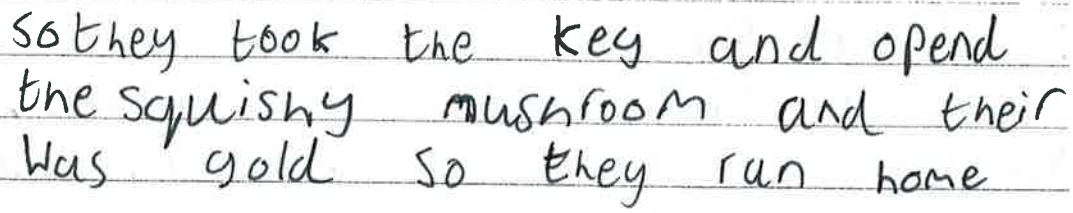 so they took the key and opend
the squishy mushroom and their
Was gold so they run home